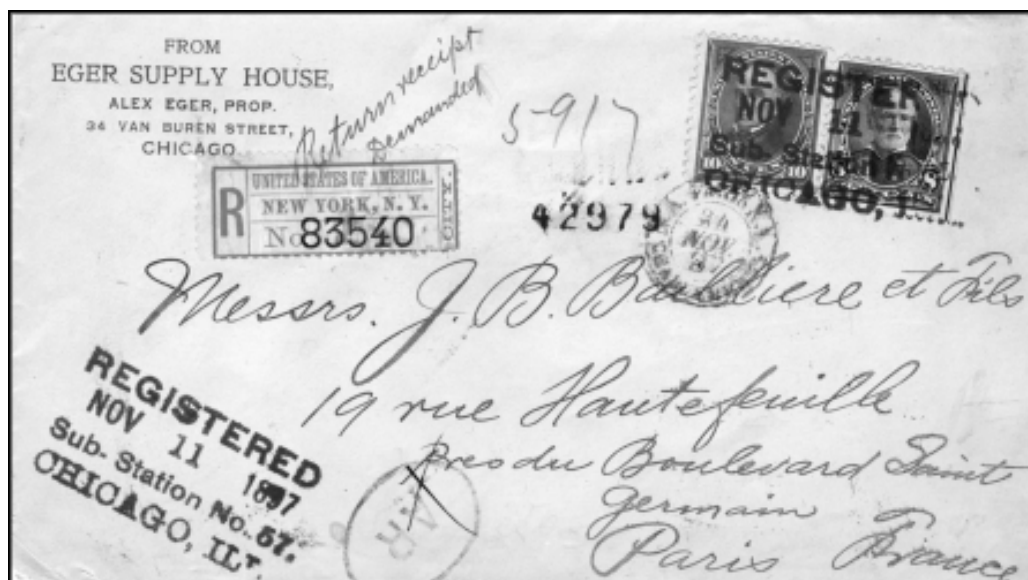 FROM
EGER SUPPLY HOUSE,
ALEX EGER, PROP.
34 VAN BUREN STREET,
CHICAGO
Return receipt
Demanded
5-917
REGISTER
NOV 11
Sub. Station
CHICAGO, I
10 10
8
R
UNITED STATES OF AMERICA.
NEW YORK, N. Y.
No 83540
CITY.
42979
NOV
Messrs. J. B. Bailliere et Fils
19 rue Hautefeuille
Pres du Boulevard Saint
Germain
Paris France
REGISTERED
NOV 11 1897
Sub. Station No. 57.
CHICAGO, ILL.